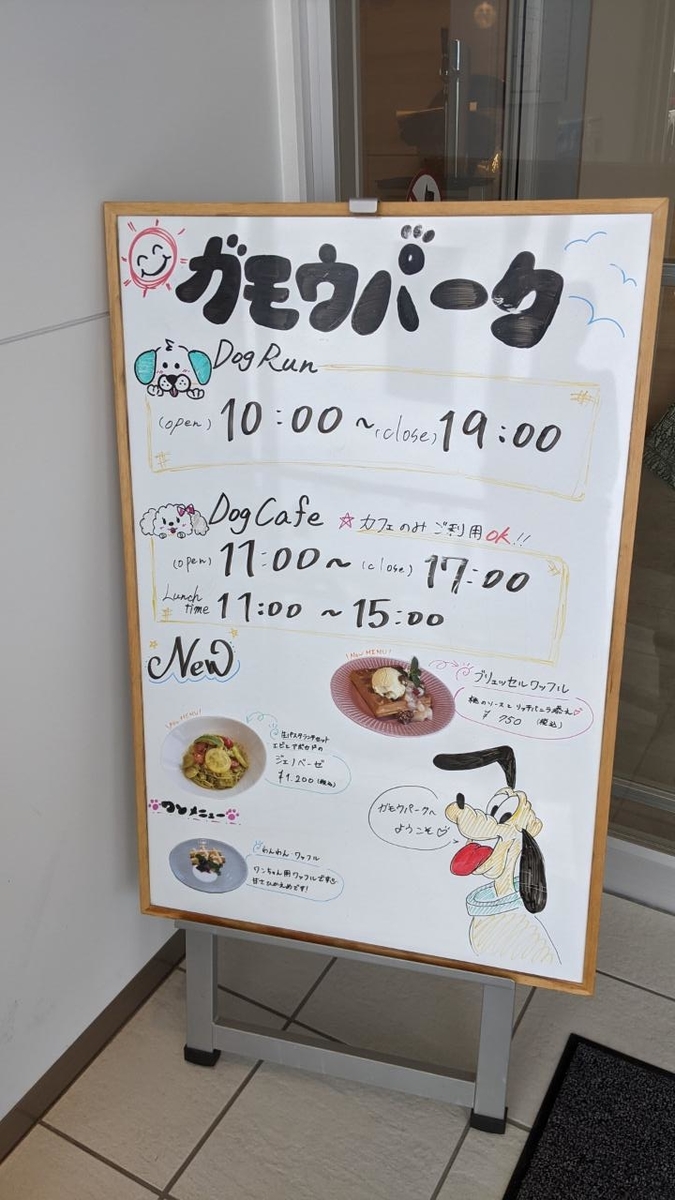 ガモウパーク
Dog Run
(open) 10:00 ~ (close) 19:00
Dog Cafe ☆カフェのみ ご利用 OK!!
(open) 11:00 ~ (close) 17:00
Lunch time 11:00 ~ 15:00
New
New MENU!
ブリュッセルワッフル
桃のソースとリッチバニラ添え♡
¥750 (税込)
New MENU!
生パスタランチセット
エビとアボカドの
ジェノベーゼ
¥1.200 (税込)
ワンメニュー
わんわん ワッフル
ワンちゃん用ワッフルです♪
甘さひかえめです!
ガモウパークへ
ようこそ♡